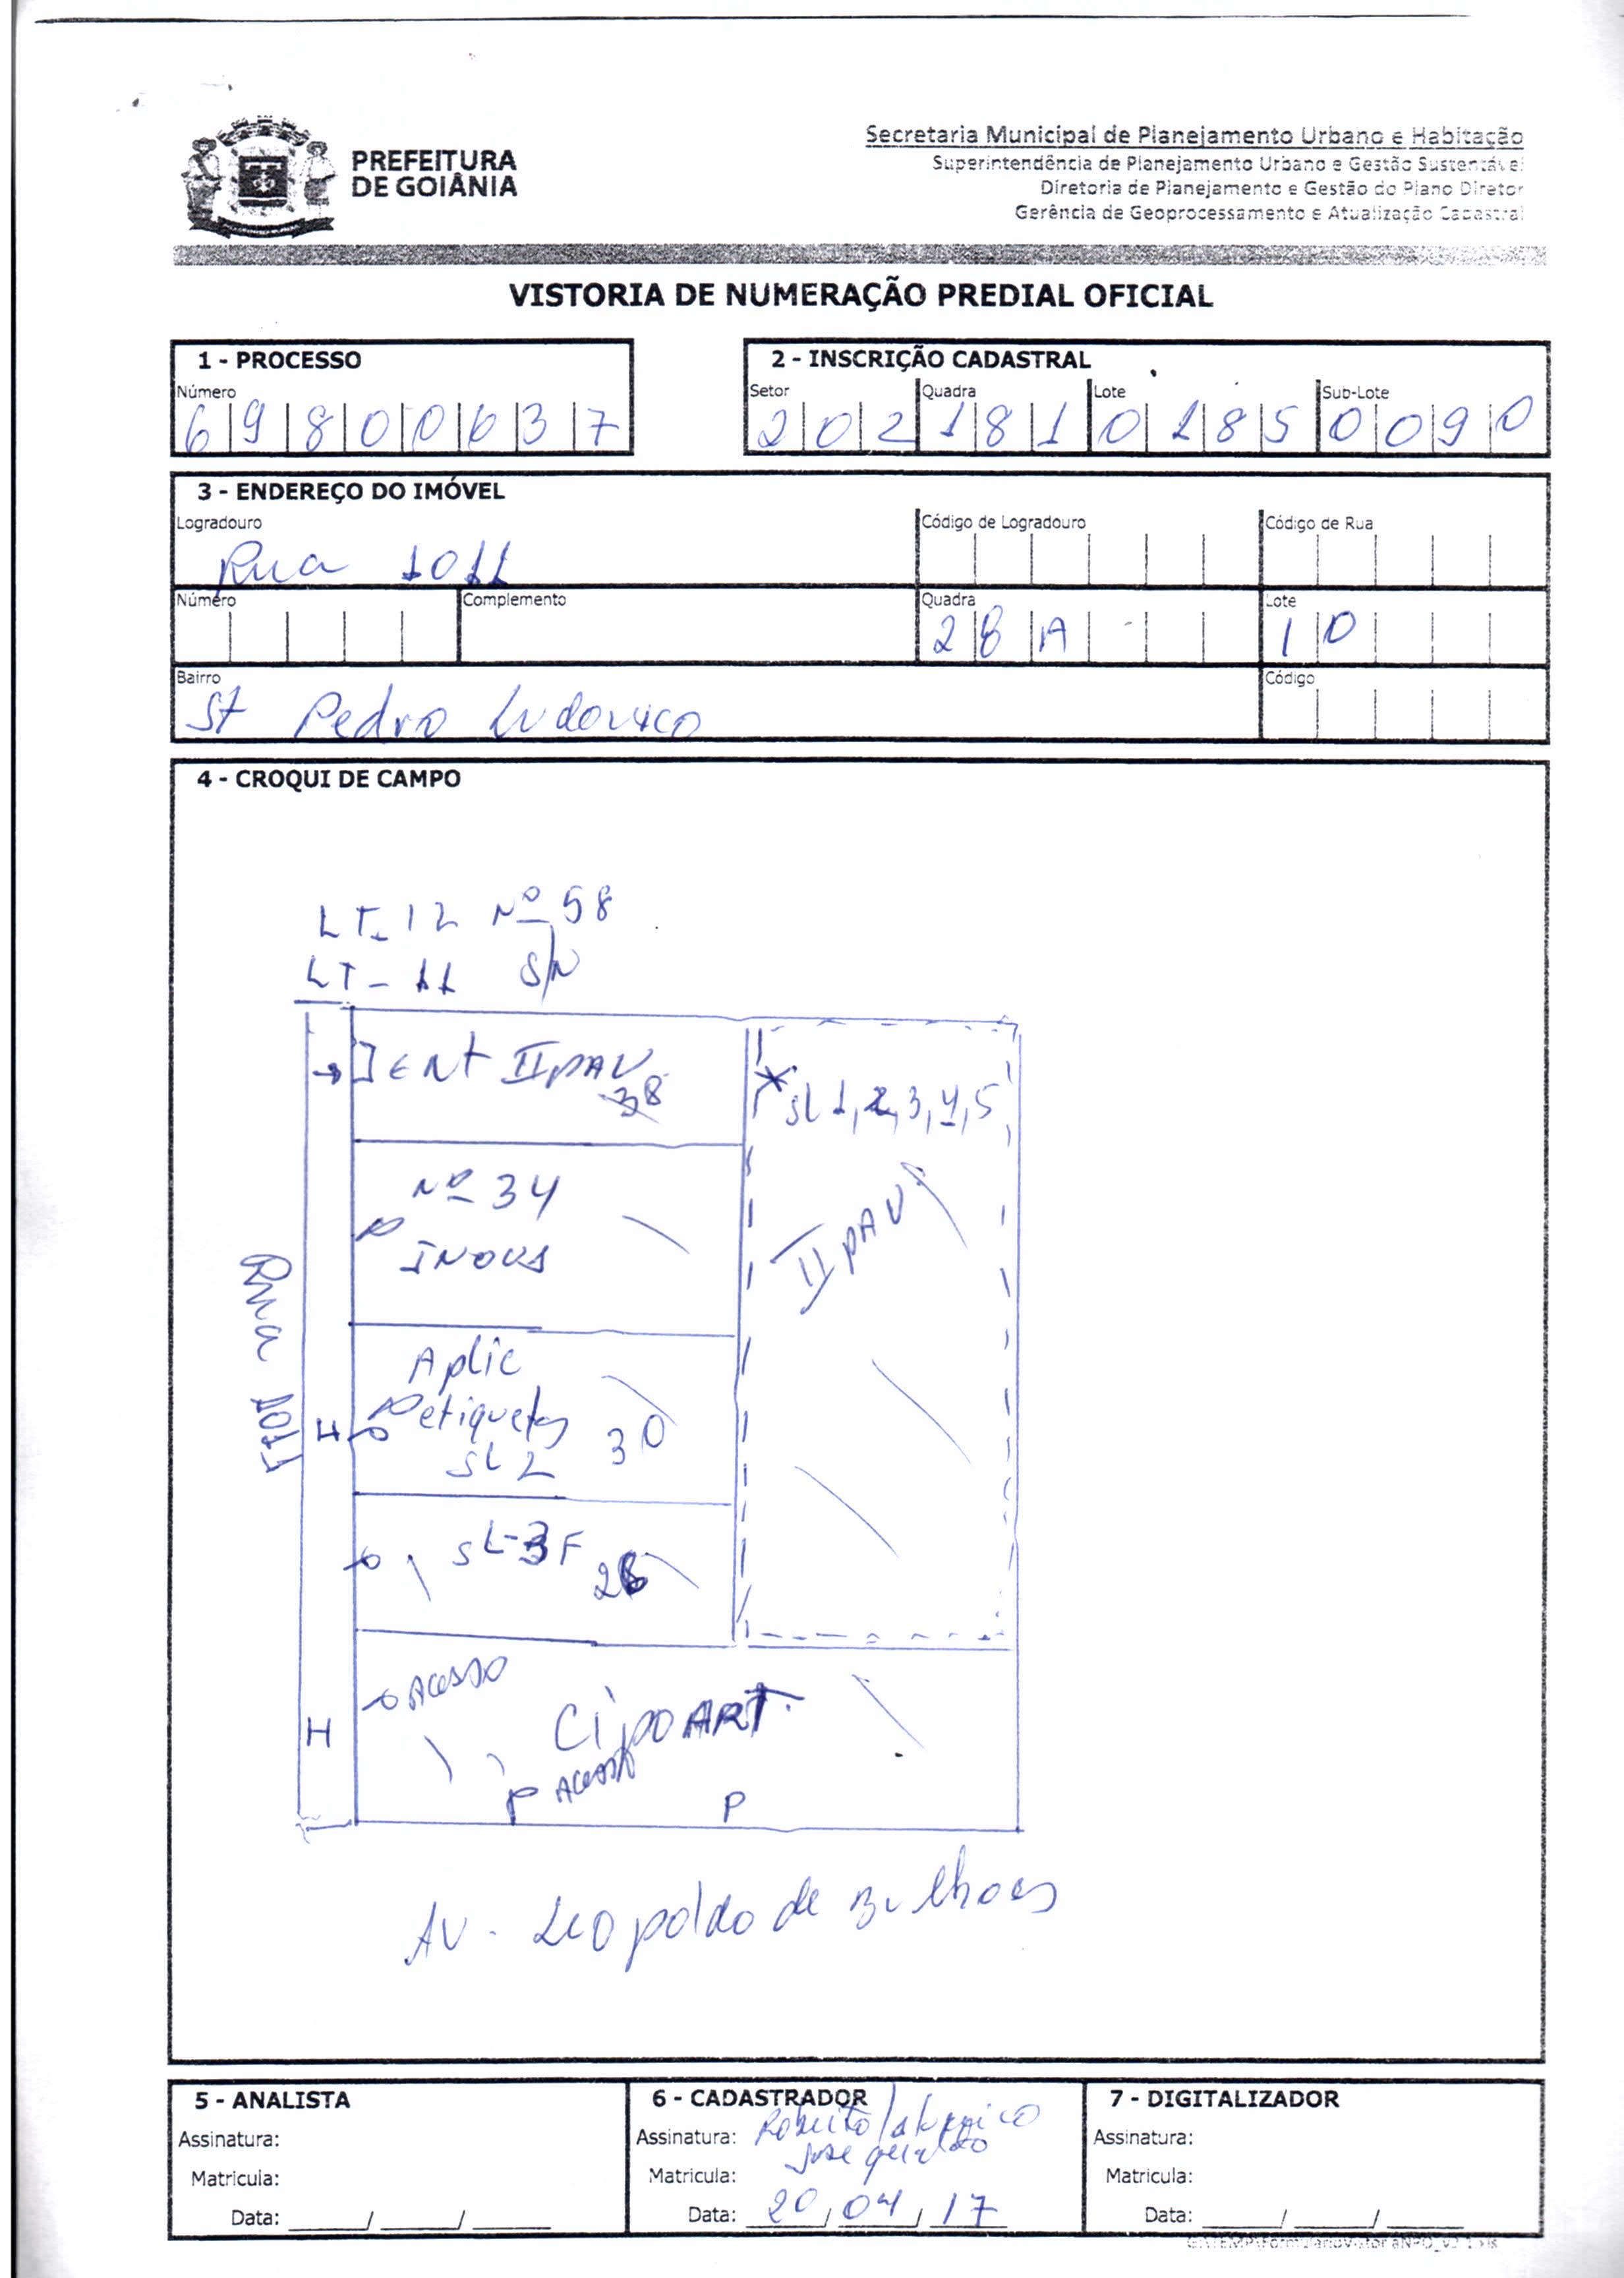 PREFEITURA
DE GOIÂNIA
Secretaria Municipal de Planejamento Urbano e Habitação
Superintendência de Planejamento Urbano e Gestão Sustentável
Diretoria de Planejamento e Gestão do Plano Diretor
Gerência de Geoprocessamento e Atualização Cadastral
VISTORIA DE NUMERAÇÃO PREDIAL OFICIAL
1 - PROCESSO
Número
69800637
2 - INSCRIÇÃO CADASTRAL
Setor Quadra Lote Sub-Lote
202 181 0185 0090
3 - ENDEREÇO DO IMÓVEL
Logradouro Código de Logradouro Código de Rua
Rua 1011
Número Complemento Quadra Lote
28A 10
Bairro Código
St Pedro Ludovico
4 - CROQUI DE CAMPO
LT-12 Nº 58
LT-11 S/N
ENT II PAV
38
SL 1,2,3,4,5
Nº 34
INOVA
II PAV
Rua 1011
Aplic
etiquetas
SL 2 30
H
SL-3F 28
Acesso
CipoART.
H
Acesso
P
AV. Leopoldo de Bulhoes
5 - ANALISTA
Assinatura:
Matricula:
Data: ____/____/____
6 - CADASTRADOR
Assinatura: Roberto
Jose Geraldo
Matricula:
Data: 20/04/17
7 - DIGITALIZADOR
Assinatura:
Matricula:
Data: ____/____/____